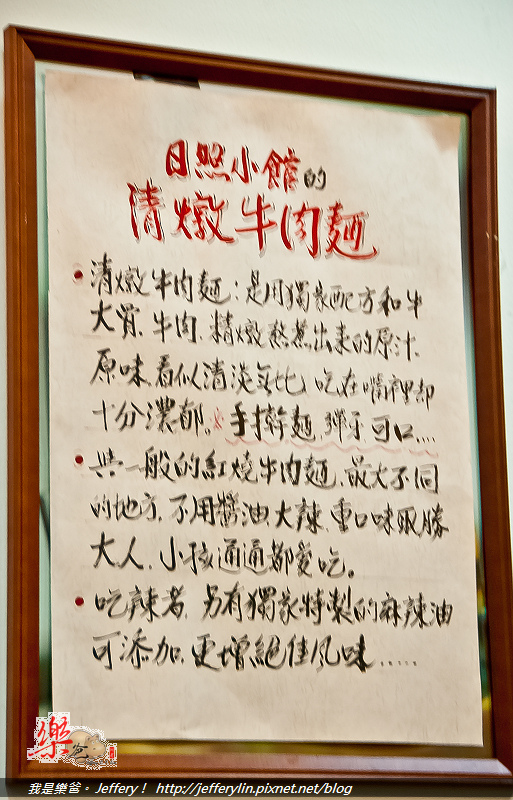 日照小館的
清燉牛肉麵
清燉牛肉麵:是用獨家配方和牛
大骨.牛肉.精燉熬煮出來的原汁.
原味.看似清淡無比,吃在嘴裡却
十分濃郁。手擀麵.彈牙可口....
與一般的紅燒牛肉麵.最大不同
的地方.不用醬油大辣.重口味
大人.小孩通通都愛吃。
吃辣者.另有獨家特製的麻辣油
可添加.更增絕佳風味.....
樂爸
我是樂爸。Jeffery! http://jefferylin.pixnet.net/blog